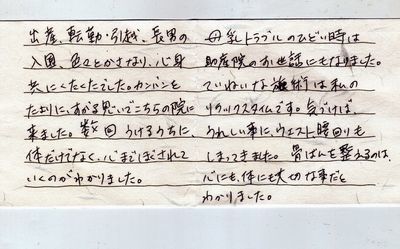 出産、転勤・引越、長男の
入園、色々とかさなり、心身
共にくたくたでした。カンバンを
たよりに、すがる思いでこちらの院に
来ました。数回うけるうちに、
体だけでなく、心までほぐされて
いくのがわかりました。
母乳トラブルのひどい時は
助産院のお世話にもなりました。
ていねいな施術は私の
リラックスタイムです。気づけば、
うれしい事にウエスト周りも
しまってきました。骨ばんを整えるのは、
心にも、体にも大切な事だと
わかりました。